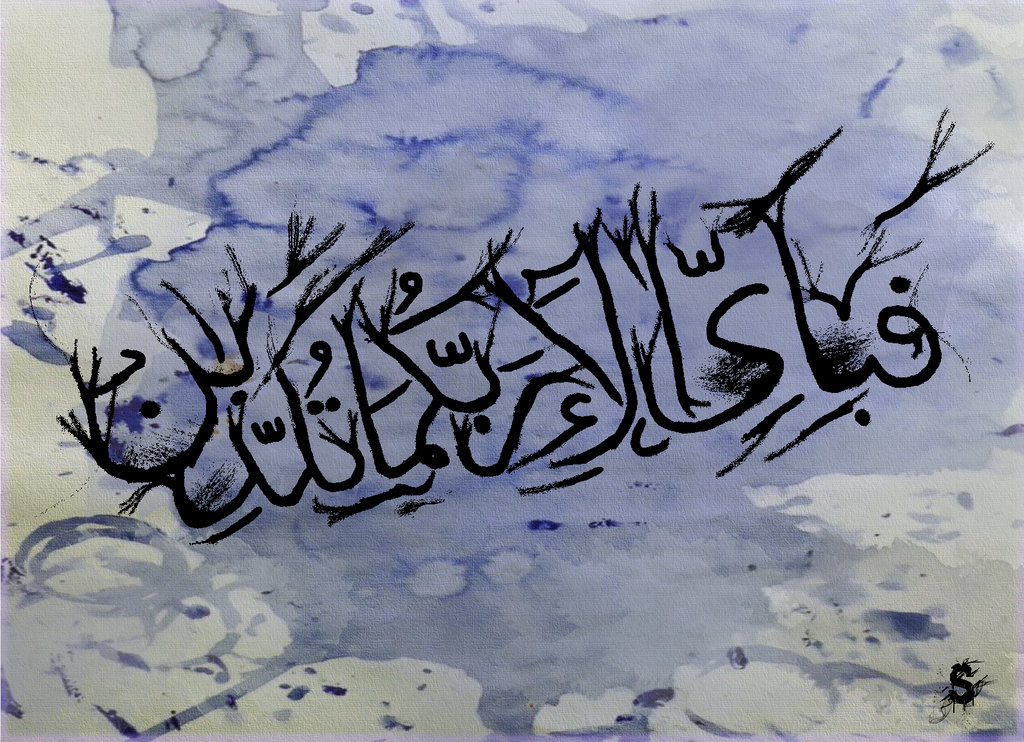 فَبِأَيِّ آلَاءِ رَبِّكُمَا تُكَذِّبَانِ
S